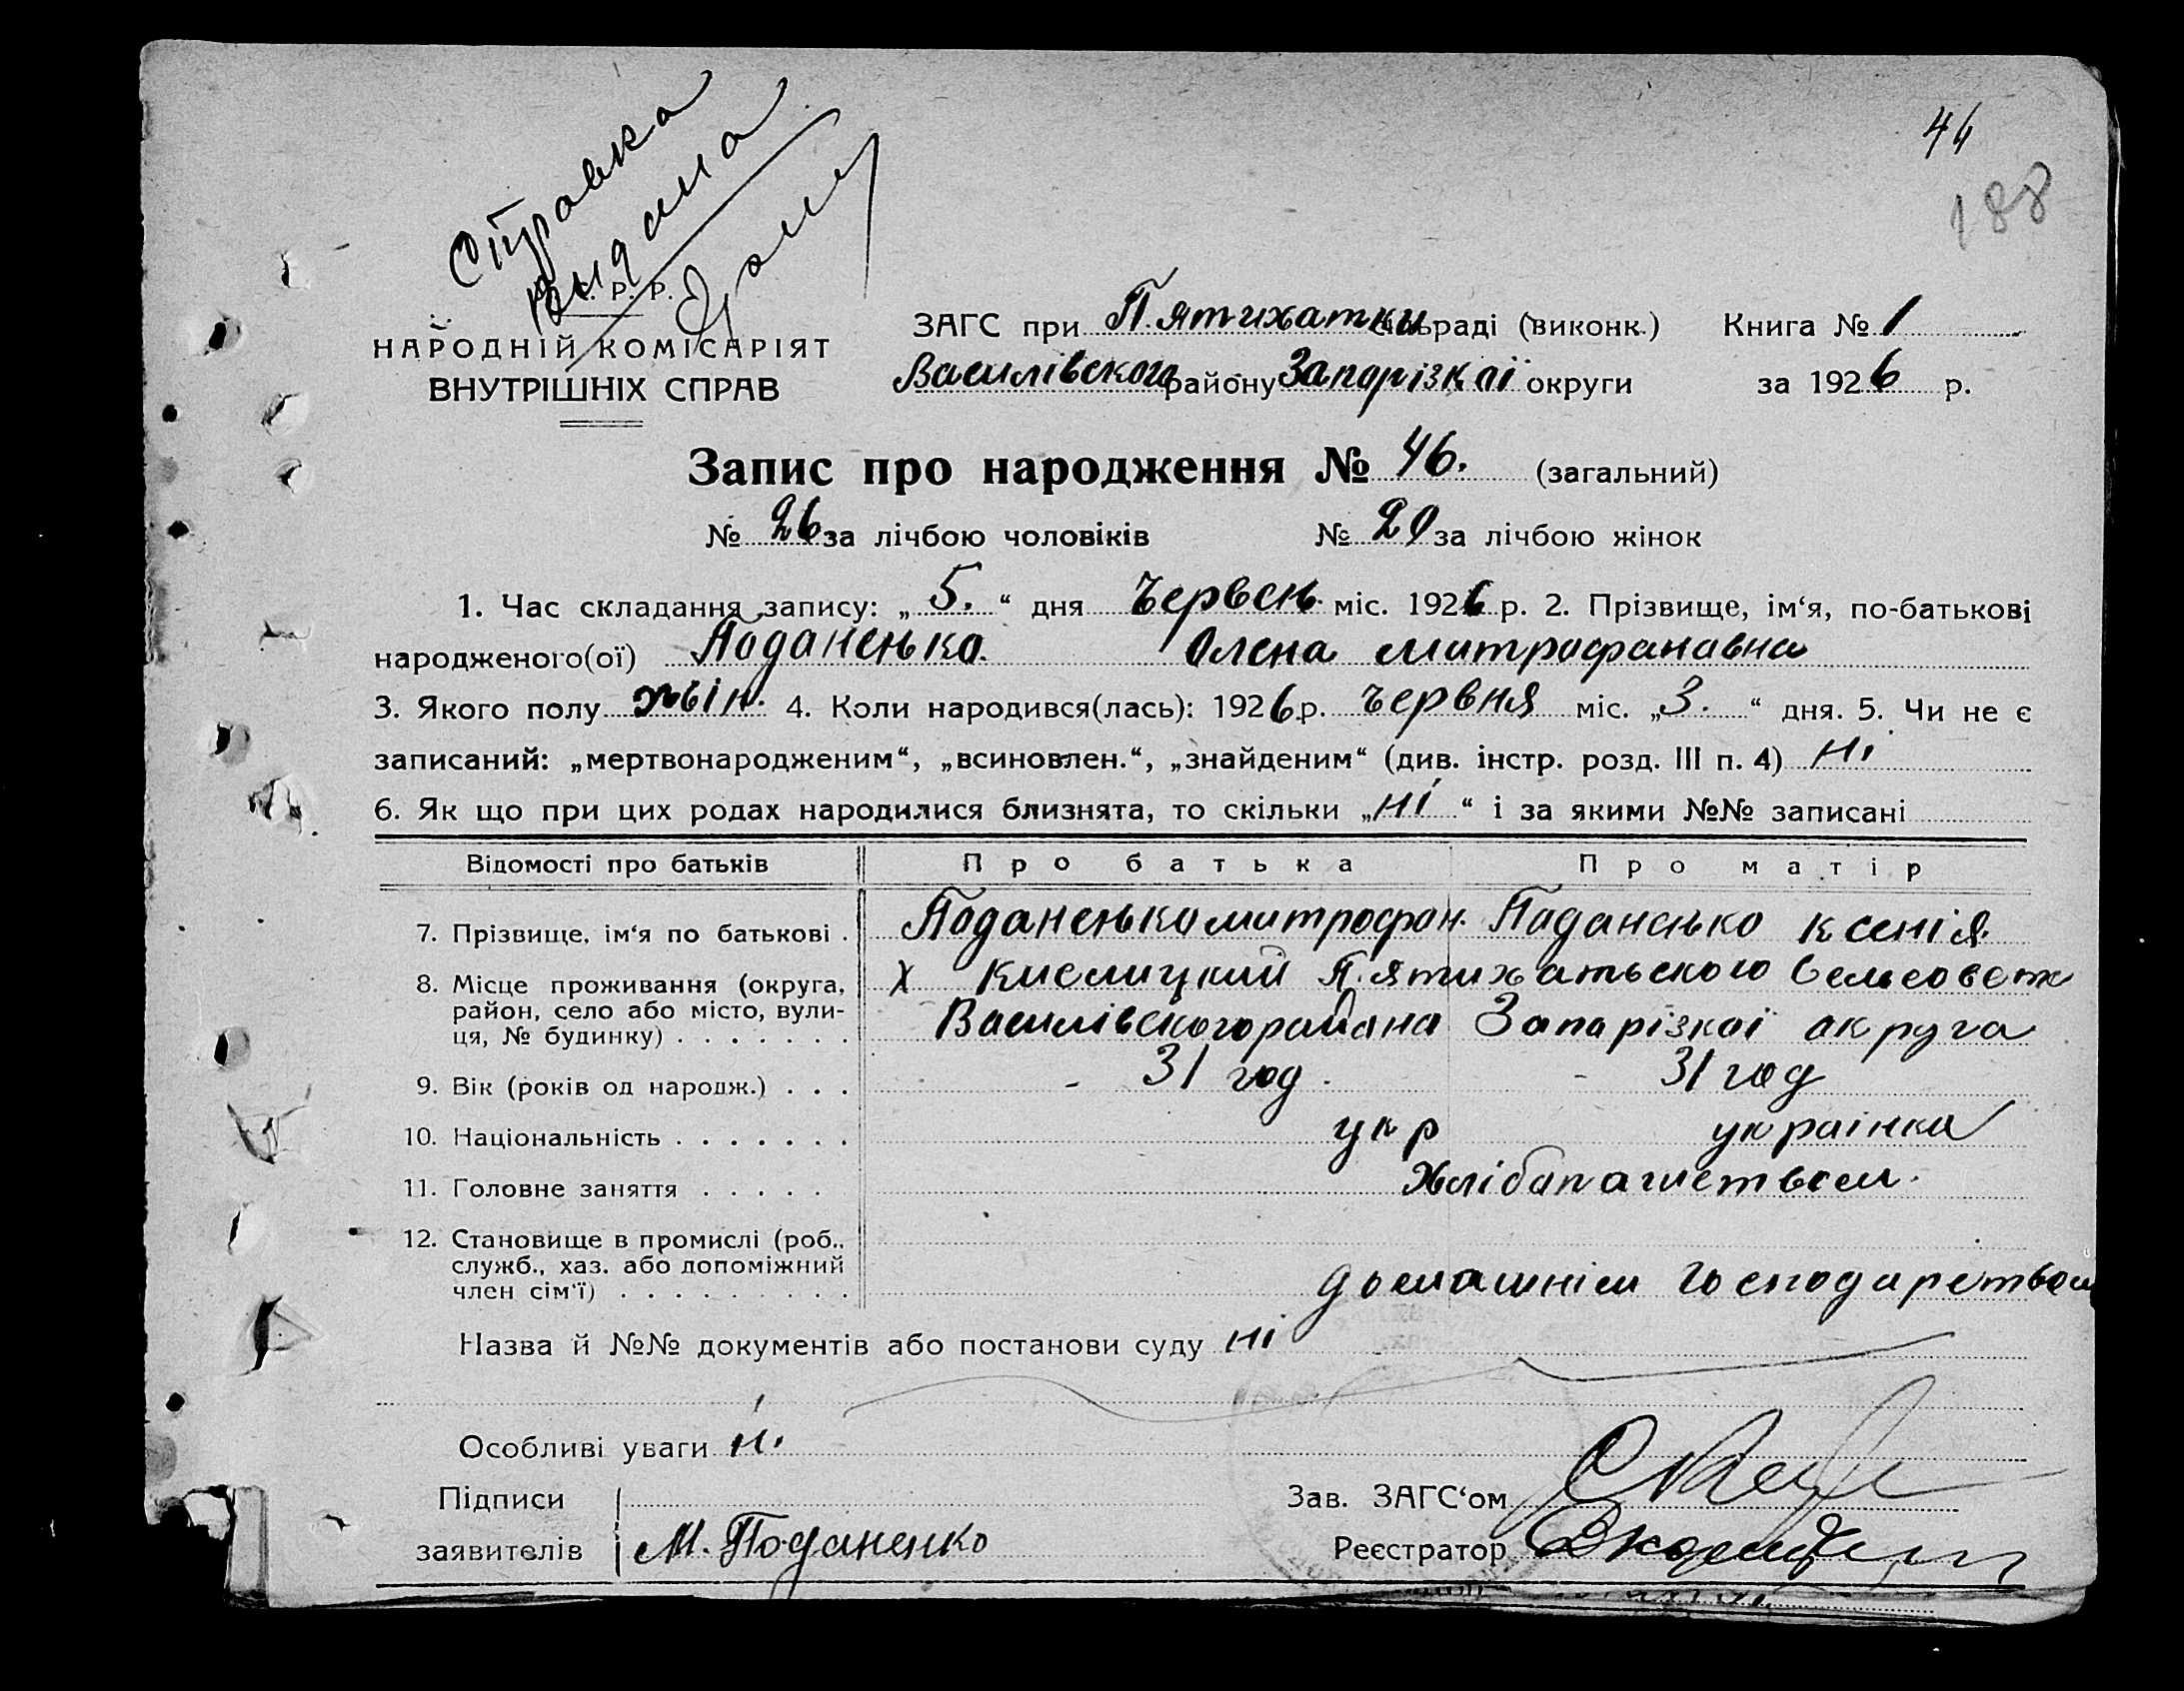 46
188
Справка
видана
У. С. Р. Р.
НАРОДНІЙ КОМІСАРІЯТ
ВНУТРІШНІХ СПРАВ
ЗАГС при П.ятихатки сільраді (виконк.) Книга № 1
Василівского району Запорізкої округи за 1926 р.
Запис про народження № 46. (загальний)
№ 26 за лічбою чоловіків № 20 за лічбою жінок
1. Час складання запису: „5.“ дня Червень міс. 1926 р. 2. Прізвище, ім‘я, по-батькові
народженого(ої) Поданенько Олена Митрофанавна
3. Якого полу жін. 4. Коли народився(лась): 1926 р. червня міс. „3.“ дня. 5. Чи не є
записаний: „мертвонародженим“, „всиновлен.“, „знайденим“ (див. інстр. розд. III п. 4) Ні
6. Як що при цих родах народилися близнята, то скільки „Ні“ і за якими №№ записані
Відомості про батьків Про батька Про матір
7. Прізвище, ім‘я по батькові . Поданенько Митрофан. Поданенько Ксенія.
8. Місце проживання (округа, х Кмелицкий П.ятихатьского Сельсовета
район, село або місто, вули- Василівского района Запарізкої округа
ця, № будинку) . . . . . . .
9. Вік (років од народж.) . . . - 31 год. - 31 год
10. Національність . . . . . . . укр українка
11. Головне заняття . . . . . Хлібапашетвом.
12. Становище в промислі (роб.,
служб., хаз. або допоміжний
член сім‘ї) . . . . . . . . . домашнім господарством
Назва й №№ документів або постанови суду Ні
Особливі уваги Ні
Підписи Зав. ЗАГС‘ом
заявителів М. Поданенко Реєстратор